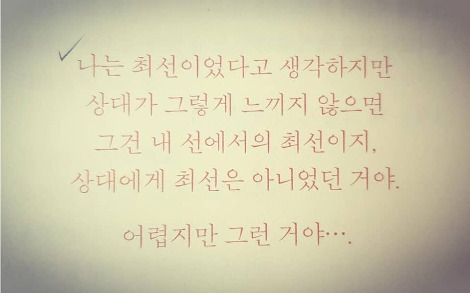 나는 최선이었다고 생각하지만
상대가 그렇게 느끼지 않으면
그건 내 선에서의 최선이지,
상대에게 최선은 아니었던 거야.
어렵지만 그런 거야….